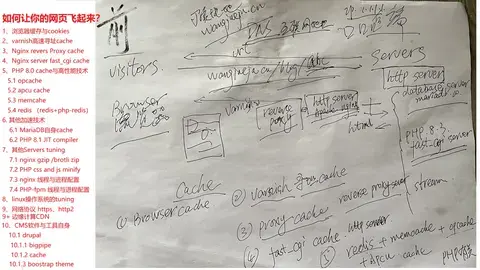 如何让你的网页飞起来?
1、浏览器缓存与cookies
2、varnish高速寻址cache
3、Nginx revers Proxy cache
4、Nginx server fast_cgi cache
5、PHP 8.0 cache与高性能技术
5.1 opcache
5.2 apcu cache
5.3 memcache
5.4 redis（redis+php-redis）
6、其他加速技术
6.1 MariaDB自身cache
6.2 PHP 8.1 JIT compiler
7、其他Servers tuning
7.1 nginx gzip /brotli zip
7.2 PHP css and js minify
7.3 nginx 线程与进程配置
7.4 PHP-fpm 线程与进程配置
8、linux操作系统的tuning
9、网络协议 https、http2
9+ 边缘计算CDN
10、CMS软件与工具自身
10.1 drupal
10.1.1 bigpipe
10.1.2 cache
10.1.3 bootstrap theme
前
wangxuejin.cn
DNS
后
visitors
url
wangxuejin.cn/blog/abc
Servers
http server
Browser
varnish
reverse proxy
http server
html
database server
mariadb
PHP 8.3
fast-cgi server
stream
Cache
① Browser cache
② varnish 寻址 cache
reverse proxy server
③ proxy-cache
http server
④ fast_cgi cache
⑤ redis + memcache + opcache
+ Apcu cache